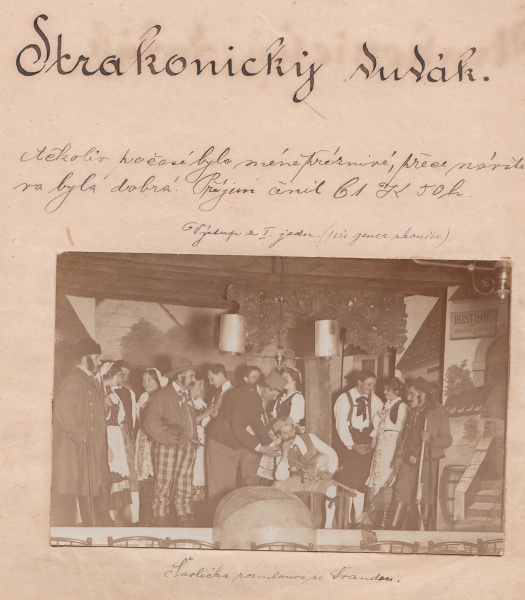 Strakonický dudák.
Ačkoliv počasí bylo méně příznivé, přece návště
va byla dobrá. Příjem činil 61 K 50 h.
Výstup z I. jedn. (při gener. zkoušce)
HOSTINEC
Šavlička rozmlouvá se Švandou.